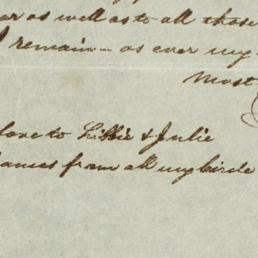 as well as to all those
I remain – as ever my
Most
love to Lillie & Julie
from all my birds